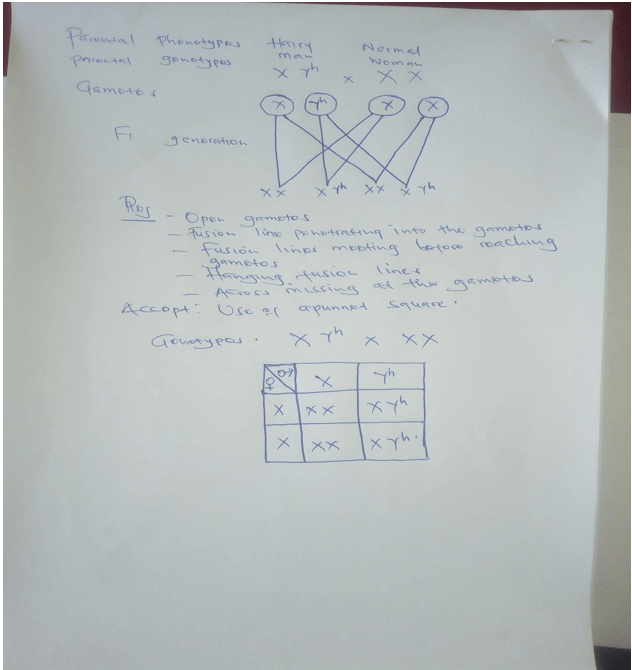 Parental phenotypes Hairy man Normal Woman
parental genotypes X Yh x X X
Gametes X Yh X X
F1 generation
XX X Yh XX X Yh
Rej - Open gametes
- Fusion line penetrating into the gametes
- Fusion lines meeting before reaching
gametes
- Hanging fusion lines
- Across missing at the gametes
Accept: Use of apunnet square.
Genotypes. X Yh x XX
♀ ♂ X Yh
X XX X Yh
X XX X Yh.